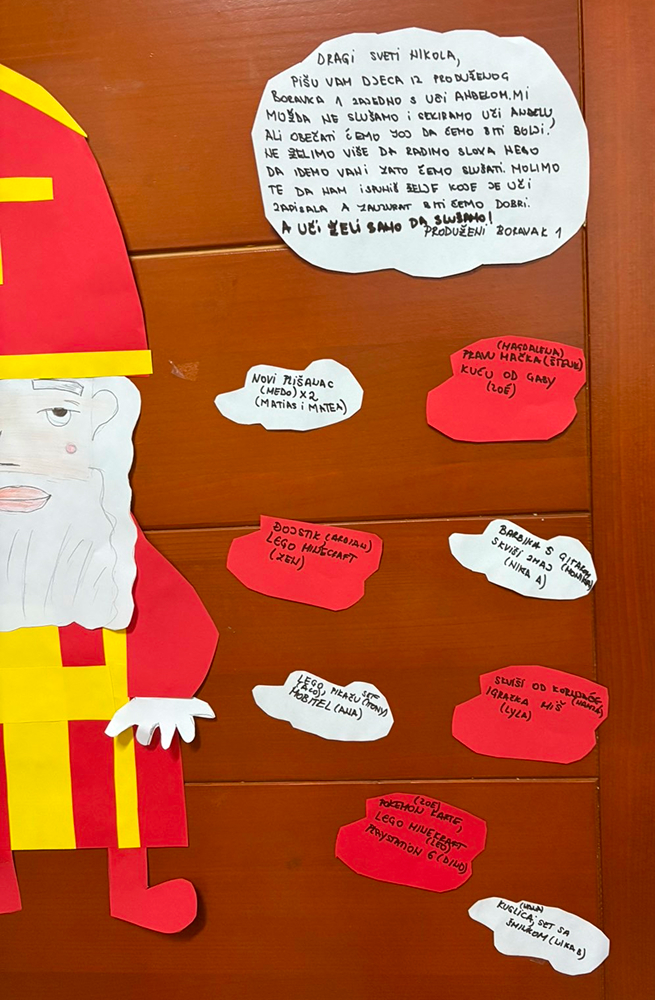 DRAGI SVETI NIKOLA,
PIŠU VAM DJECA IZ PRODUŽENOG
BORAVKA 1 ZAJEDNO S UČI ANĐELOM. MI
MOŽDA NE SLUŠAMO I SEKIRAMO UČI ANĐELU,
ALI OBEĆATI ĆEMO JOJ DA ĆEMO BITI BOLJI.
NE ŽELIMO VIŠE DA RADIMO SLOVA NEGO
DA IDEMO VANI ZATO ĆEMO SLUŠATI. MOLIMO
TE DA NAM ISPUNIŠ ŽELJE KOJE JE UČI
ZAPISALA A ZAUZVRAT BITI ĆEMO DOBRI.
A UČI ŽELI SAMO DA SLUŠAMO!
PRODUŽENI BORAVAK 1
(MAGDALENA)
PRAVU MAČKA
KUĆU OD GABY
(ZOÉ)
NOVI PLIŠANAC
(MEDO) X2
(MATIAS i MATEA)
ĐOJSTIK (ARDIAN)
LEGO MINECRAFT
(ZEN)
BARBIKA S GITAROM
SKVIŠI ZMAJ
(NIKA A)
LEGO, PIKAČU (TONY)
MOBITEL (ANA)
SKVIŠI OD KORNJAČE
IGRAČKA MIŠ
(LYLA)
(ZOE)
POKEMON KARTE,
LEGO MINEKRAFT
(LEO)
PLAYSTATION 6 (DINO)
KUGLICA, SET SA
ŠMINKOM (LIKA B)